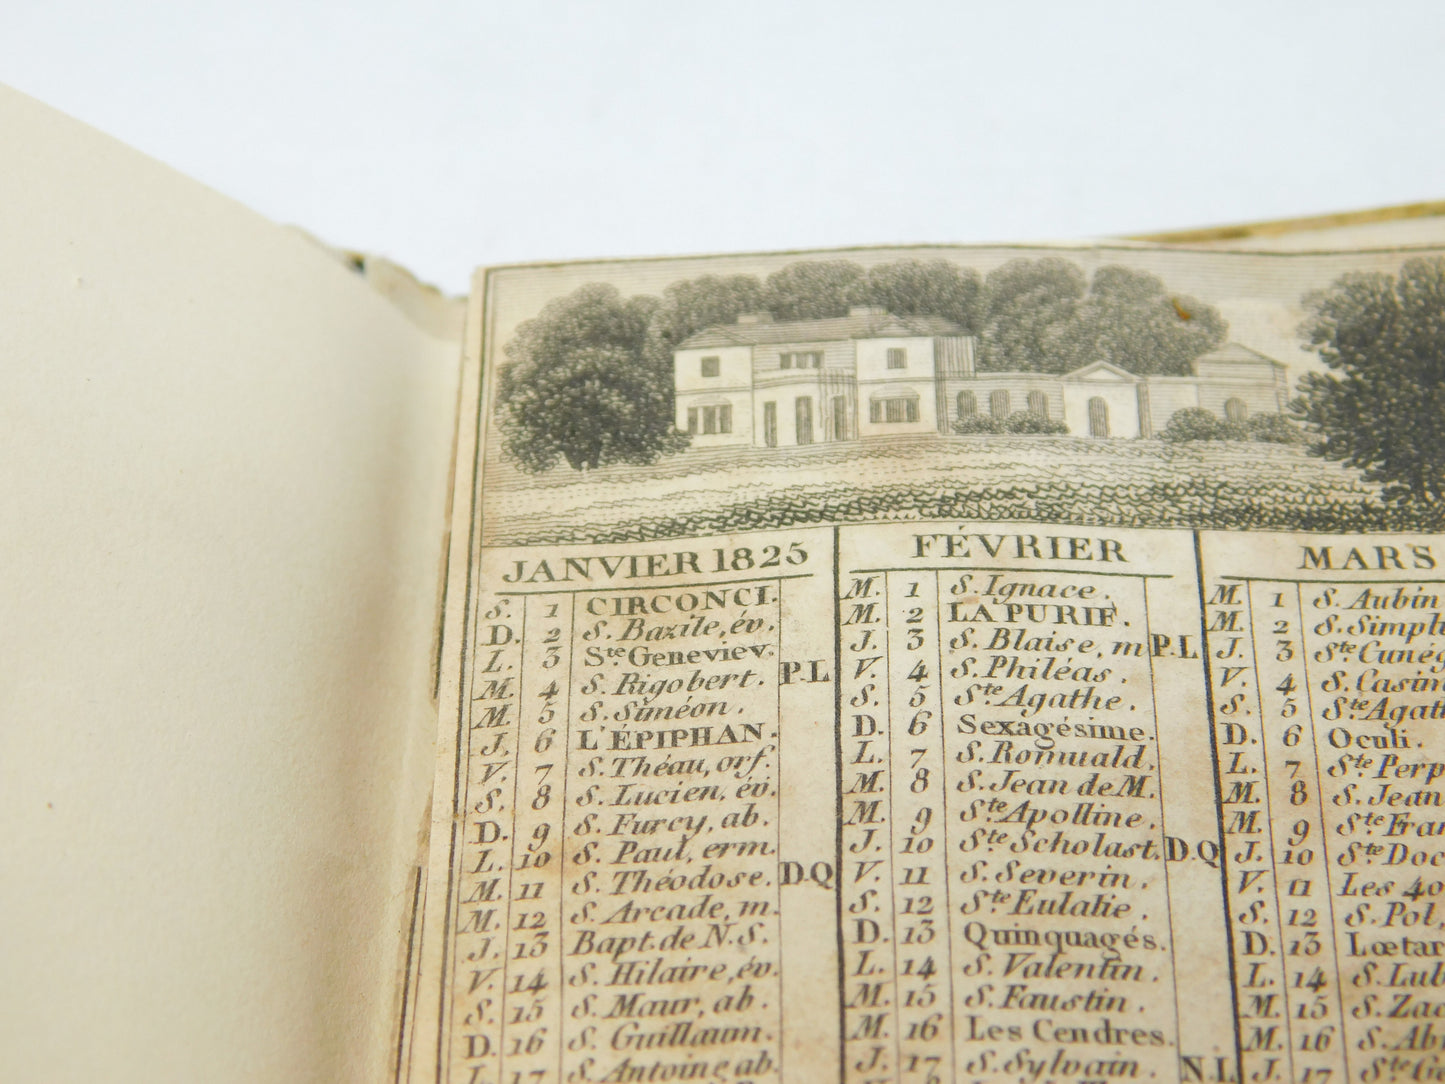 JANVIER 1825
S. 1 CIRCONCI.
D. 2 S. Bazile, év.
L. 3 Ste Geneviev.
M. 4 S. Rigobert. P.L
M. 5 S. Siméon.
J. 6 L'ÉPIPHAN.
V. 7 S. Théau, orf.
S. 8 S. Lucien, év.
D. 9 S. Furcy, ab.
L. 10 S. Paul, erm.
M. 11 S. Théodose. D.Q
M. 12 S. Arcade, m.
J. 13 Bapt. de N.S.
V. 14 S. Hilaire, év.
S. 15 S. Maur, ab.
D. 16 S. Guillaum.
L. 17 S. Antoine ab.
FÉVRIER
M. 1 S. Ignace.
M. 2 LA PURIF.
J. 3 S. Blaise, m P.L
V. 4 S. Philéas.
S. 5 Ste Agathe.
D. 6 Sexagésime.
L. 7 S. Romuald.
M. 8 S. Jean de M.
M. 9 Ste Apolline.
J. 10 Ste Scholast. D.Q
V. 11 S. Severin.
S. 12 Ste Eulalie.
D. 13 Quinquagés.
L. 14 S. Valentin.
M. 15 S. Faustin.
M. 16 Les Cendres.
J. 17 S. Sylvain. N.L
MARS
M. 1 S. Aubin
M. 2 S. Simpl
J. 3 Ste Cunég
V. 4 S. Casim
S. 5 Ste Agat
D. 6 Oculi.
L. 7 Ste Perp
M. 8 S. Jean
M. 9 Ste Fran
J. 10 Ste Doc
V. 11 Les 40
S. 12 S. Pol,
D. 13 Lœtar
L. 14 S. Lub
M. 15 S. Zac
M. 16 S. Ab
J. 17 Ste G